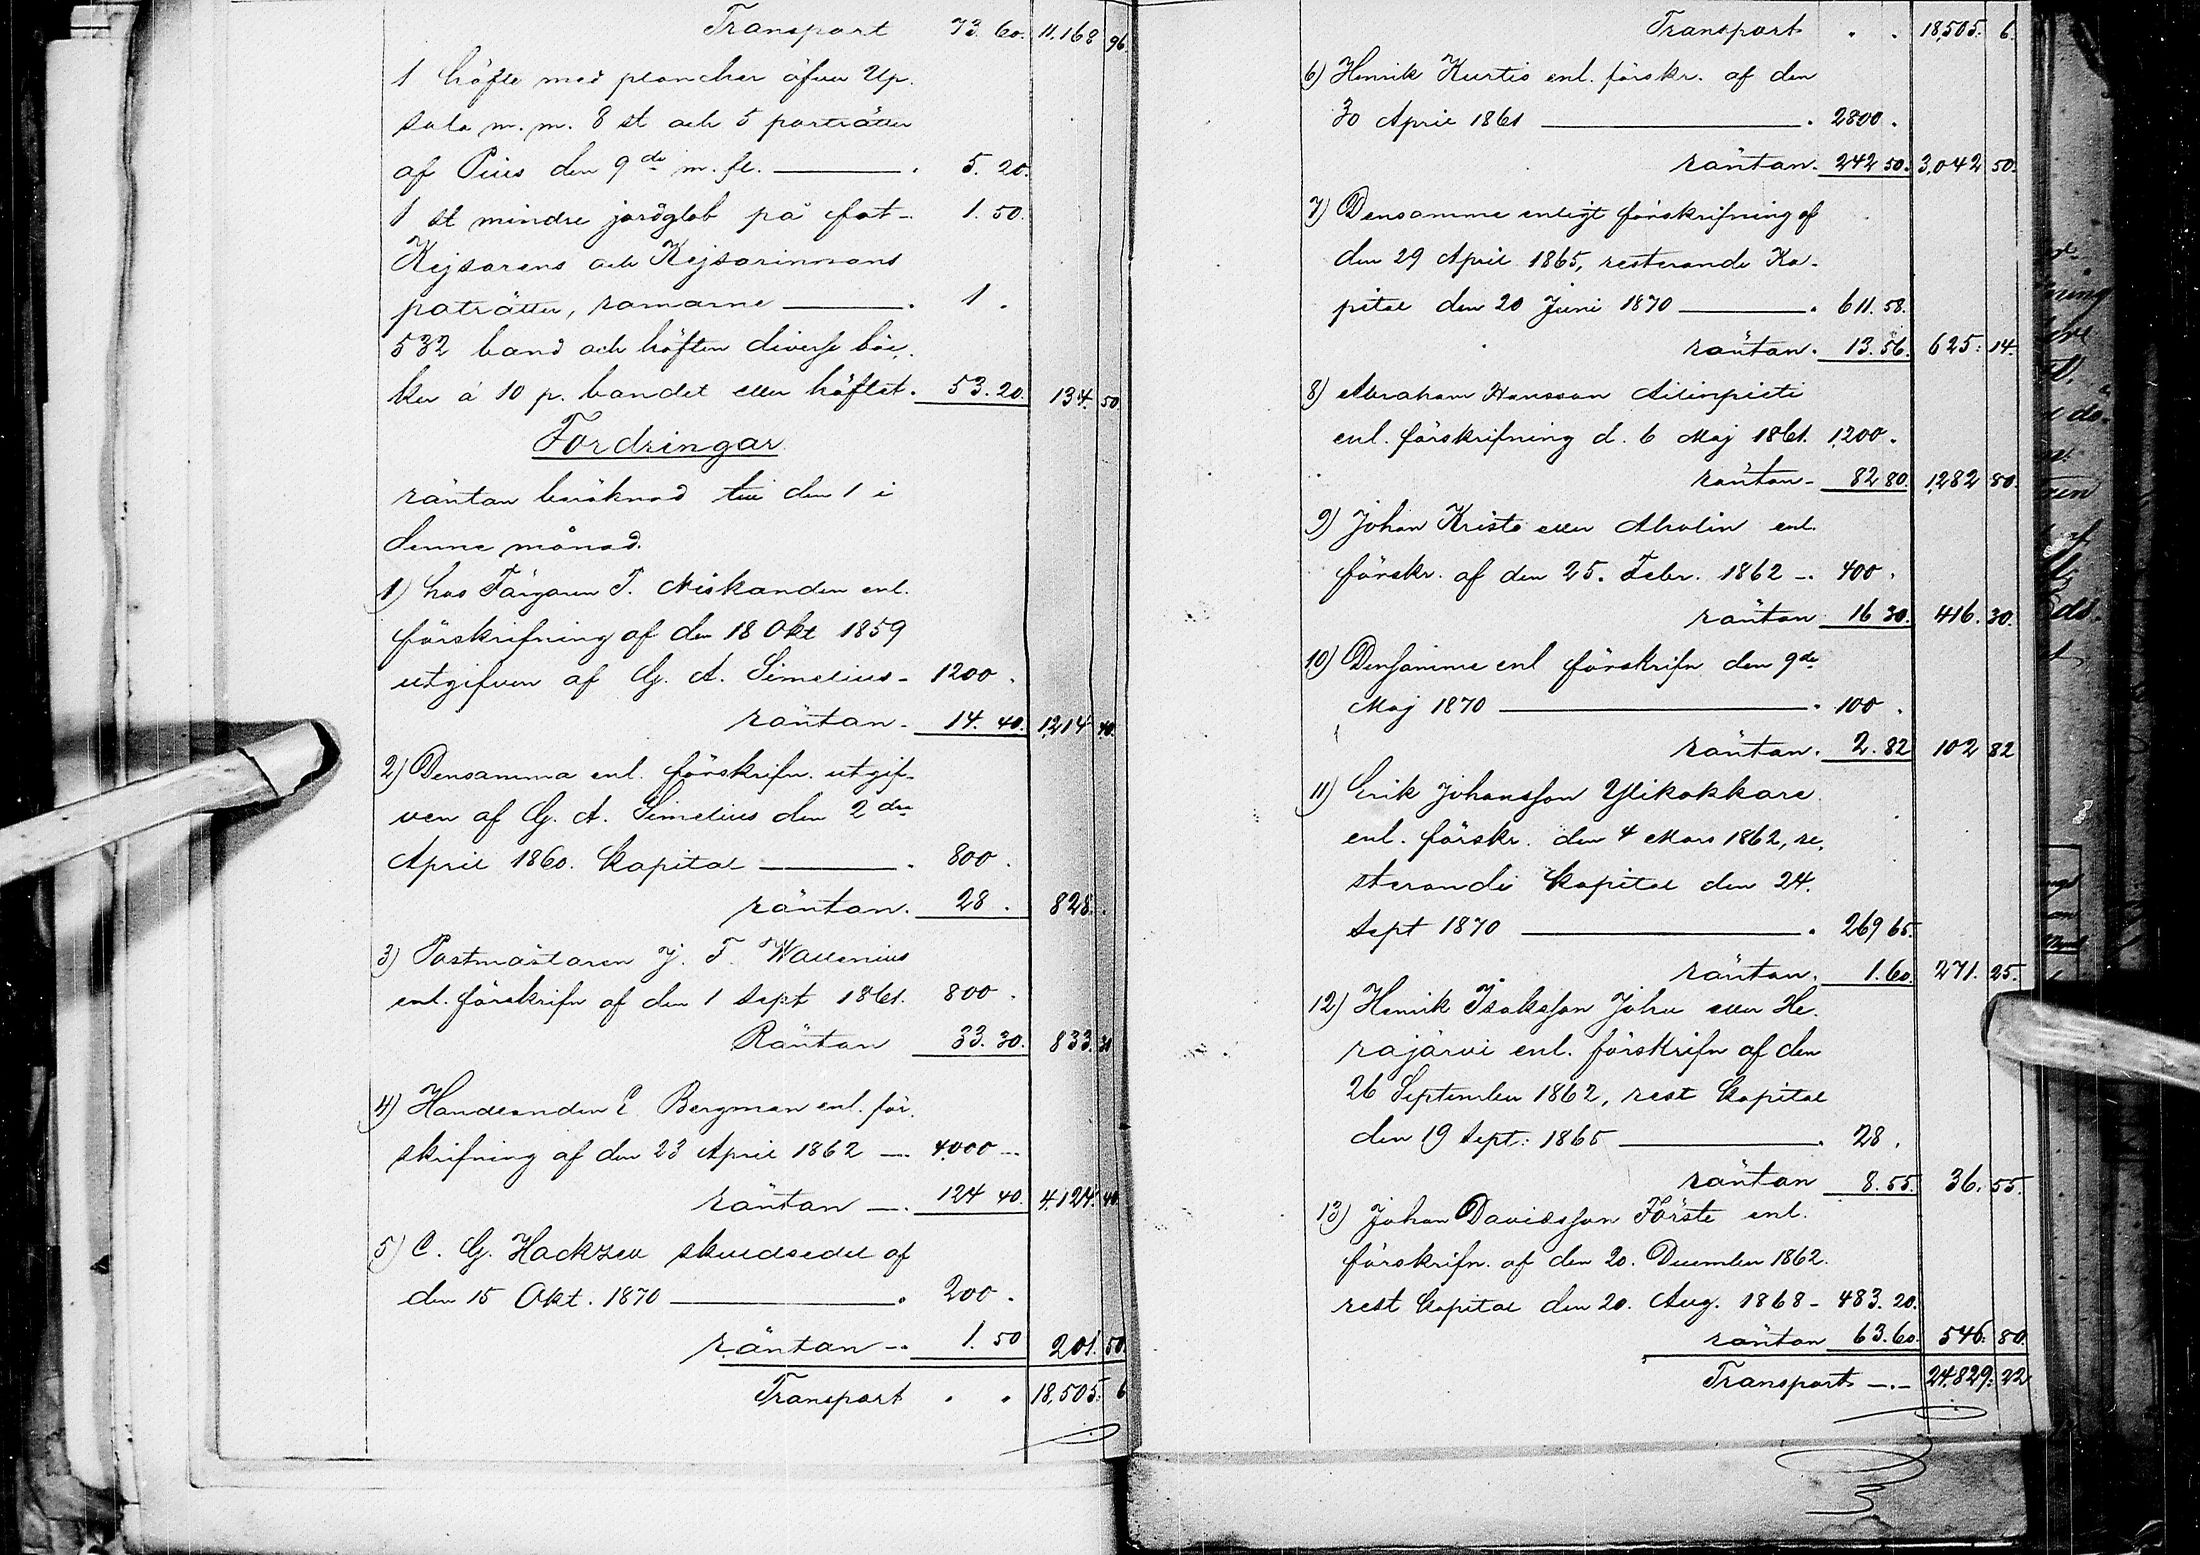 Transport 73. 60. 11.168 96.
1 häfte med plancher öfver Up-
sala m. m. 8 st och 5 porträtter
af Pius den 9de m. fl. 5. 20.
1 st mindre jordglob på fot 1. 50.
Kejsarens och Kejsarinnans
poträtter, ramarne 1.
532 band och häften diverse böc-
ker á 10 p. bandet eller häftet. 53. 20. 134. 50
Fordringar
räntan beräknad till den 1 i
denne månad.
1) hos Färgaren T. Niskanden enl.
förskrifning af den 18 Okt 1859
utgifven af G. A. Simelius 1200.
räntan. 14. 40. 1,214 40.
2) Densamma enl. förskrifn. utgif-
ven af G. A. Simelius den 2dre
April 1860. Kapital 800.
räntan. 28. 828.
3) Postmästaren J. F. Wallenius
enl. förskrifn af den 1 Sept 1861. 800.
Räntan 33. 30. 833. 30
4) Handlanden E Bergman enl. för-
skrifning af den 23 April 1862 4,000
räntan 124 40. 4,124. 40.
5) C. G. Hackzell skuldsedel af
den 15 Okt. 1870 200.
räntan 1. 50 201. 50.
Transport 18,505. 6
Transport 18,505. 6.
6) Henrik Kurtis enl. förskr. af den
30 April 1861 2800.
räntan. 242 50. 3,042 50.
7) Densamme enligt förskrifning af
den 29 April 1865, resterande Ka-
pital den 20 Juni 1870 611. 58.
räntan. 13. 56. 625. 14.
8) Abraham Hansson Ailinpieti
enl. förskrifning d. 6 Maj 1861. 1,200.
räntan 82 80. 1,282 80.
9) Johan Kriste eller Aholin enl.
förskr. af den 25. Febr. 1862 400.
räntan 16 30. 416. 30.
10) Densamme enl förskrifn den 9de
Maj 1870 100.
räntan. 2. 82 102 82
11) Erik Johansson Ylikokkare
enl. förskr. den 4 Mars 1862, re-
sterande Kapital den 24.
Sept 1870 269 65.
räntan. 1. 60. 271. 25.
12) Henrik Isaksson Juhu eller He-
rajärvi enl. förskrifn af den
26 September 1862, rest Kapital
den 19 Sept: 1865 28.
räntan 8. 55. 36. 55.
13) Johan Davidsson Förste enl.
förskrifn. af den 20. December 1862.
rest Kapital den 20. Aug. 1868 483. 20.
räntan 63. 60. 546. 80.
Transport 24,829. 22